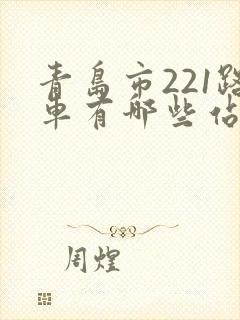 青岛市221路
車有哪些佔
周煌